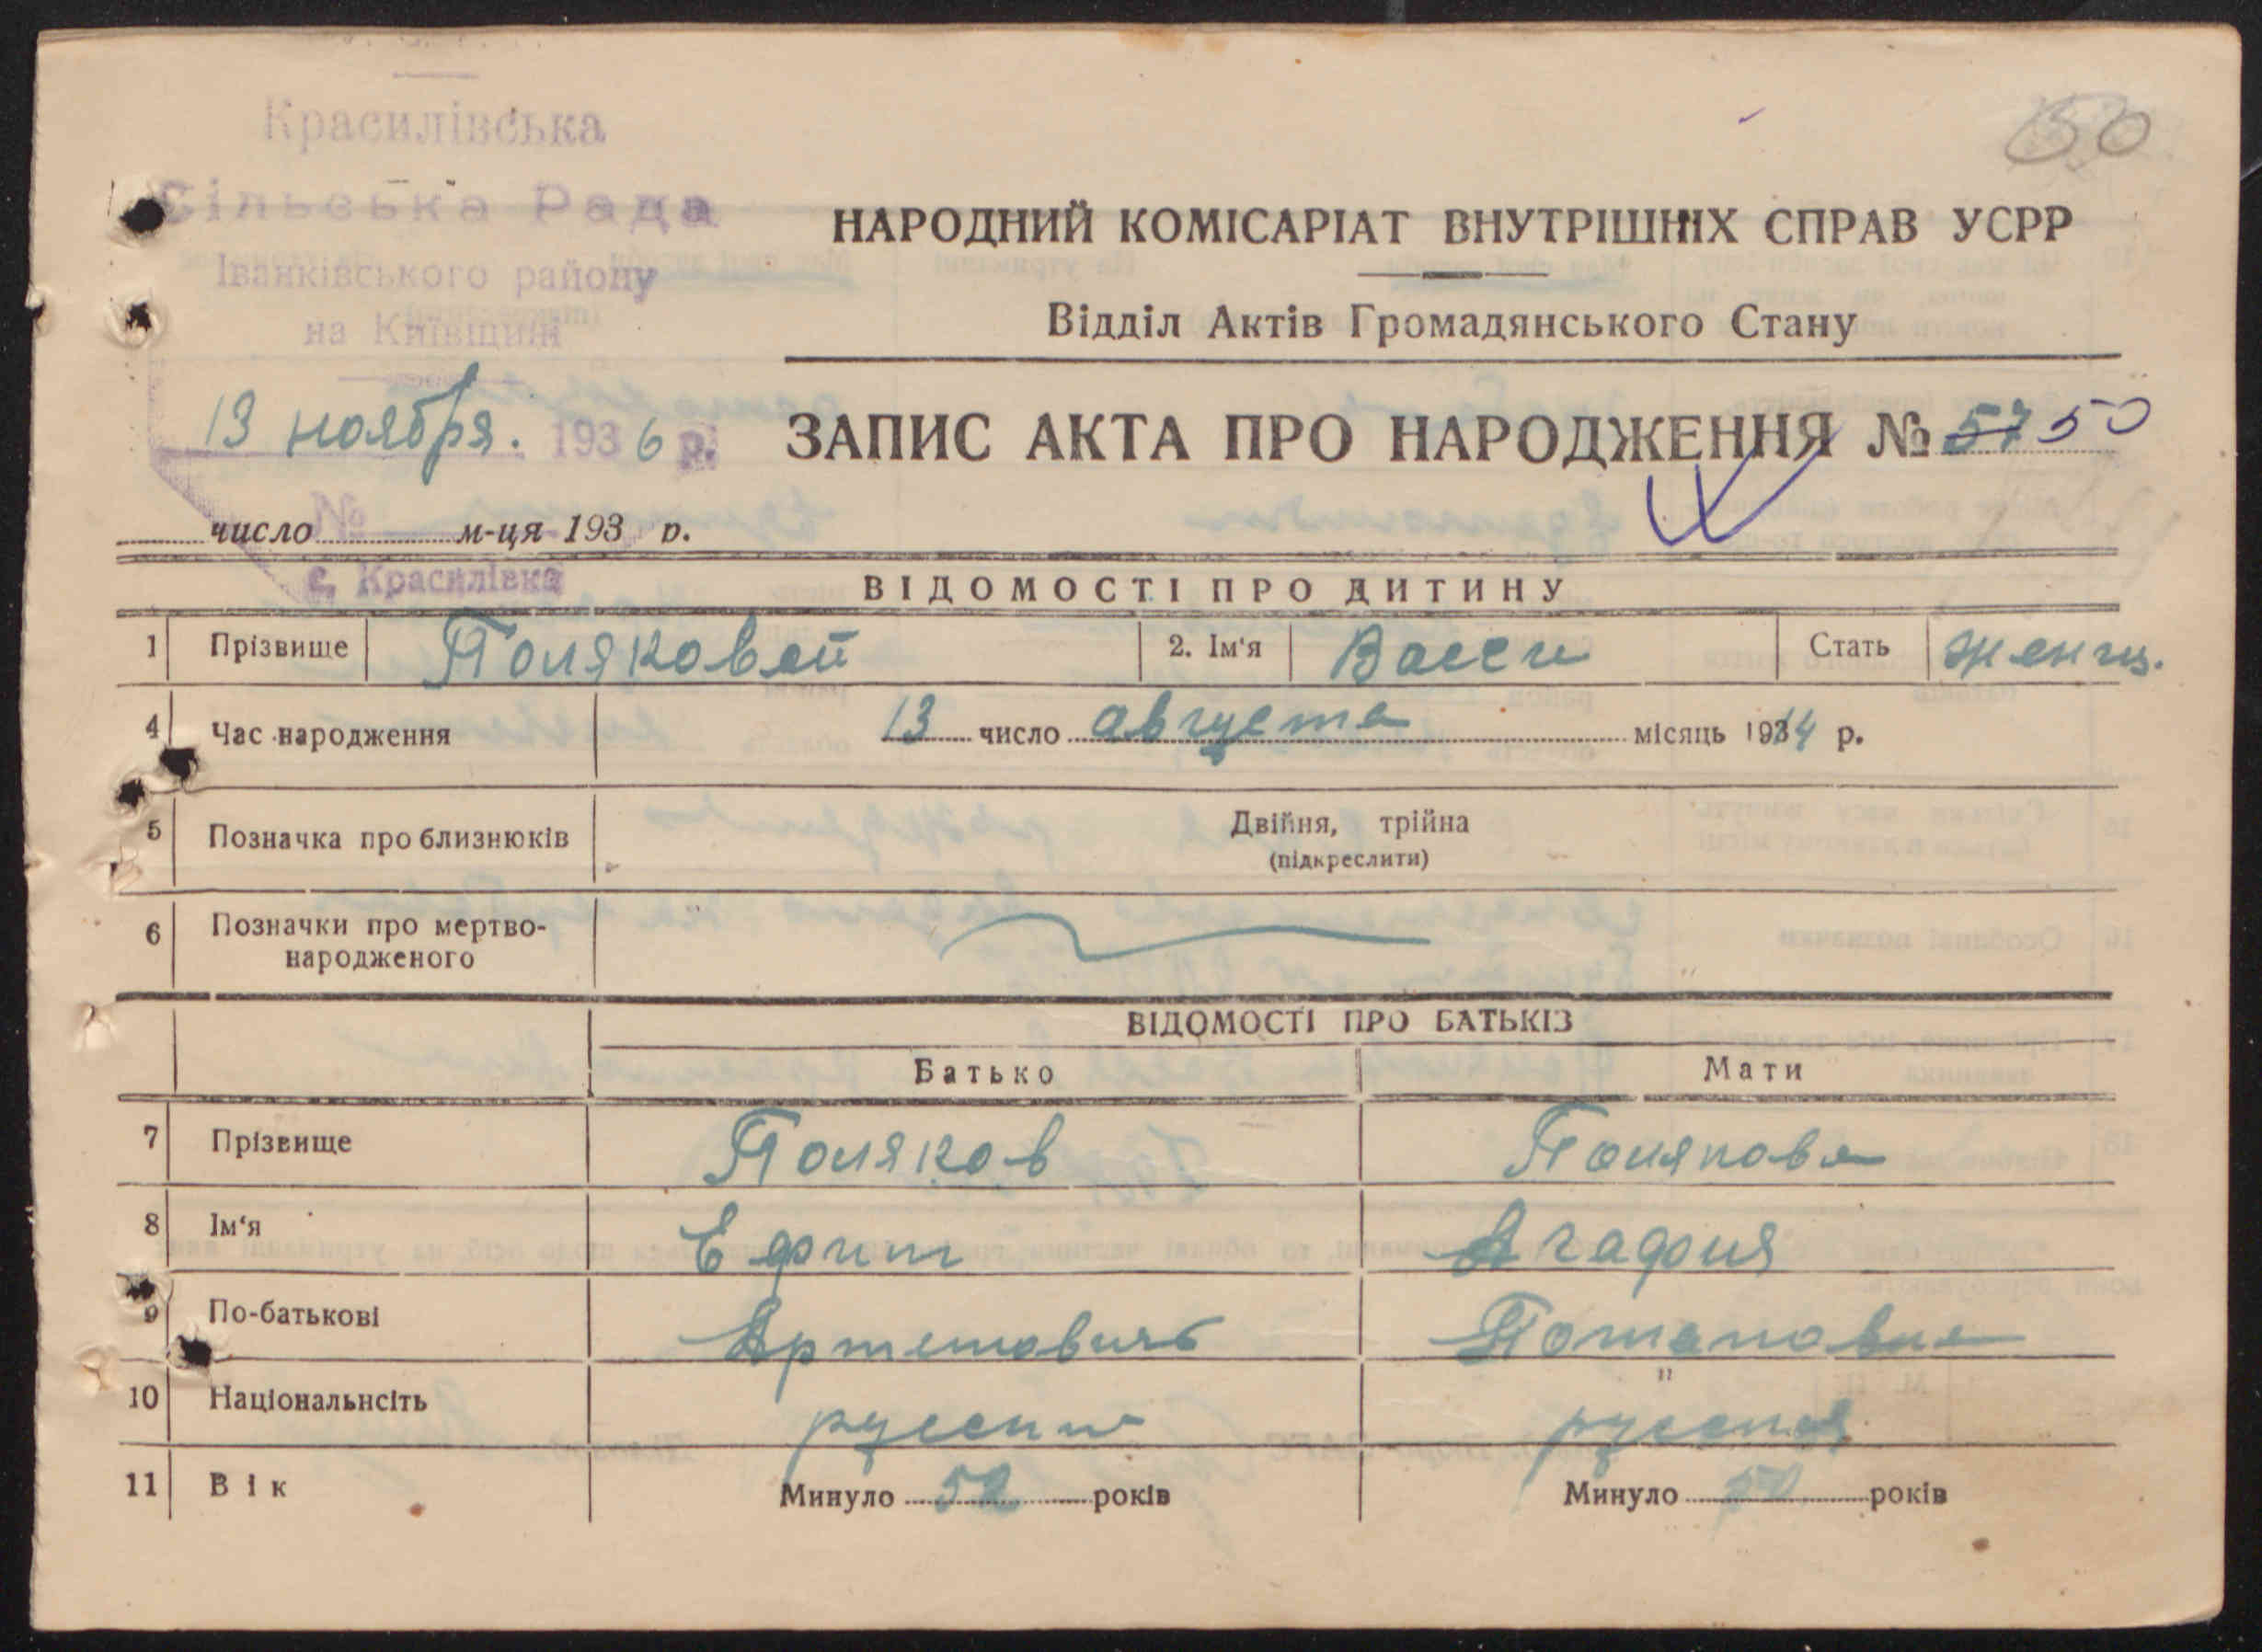 50
Красилівська
Сільська Рада
Іванківського району
на Київщині
13 ноября. 1936 р.
№
с. Красилівка
НАРОДНИЙ КОМІСАРІАТ ВНУТРІШНІХ СПРАВ УСРР
Відділ Актів Громадянського Стану
ЗАПИС АКТА ПРО НАРОДЖЕННЯ № 57 50
число м-ця 193 р.
ВІДОМОСТІ ПРО ДИТИНУ
1 Прізвище Поляковой 2. Ім'я Васси Стать женщ.
4 Час народження 13 число августа місяць 1914 р.
5 Позначка про близнюків Двійня, трійна
(підкреслити)
6 Позначки про мертво-
народженого
ВІДОМОСТІ ПРО БАТЬКІВ
Батько Мати
7 Прізвище Поляков Полякова
8 Ім'я Ефим Агафия
9 По-батькові Артемович Потаповна
10 Національнсіть русский русская
11 Вік Минуло 52 років Минуло 50 років